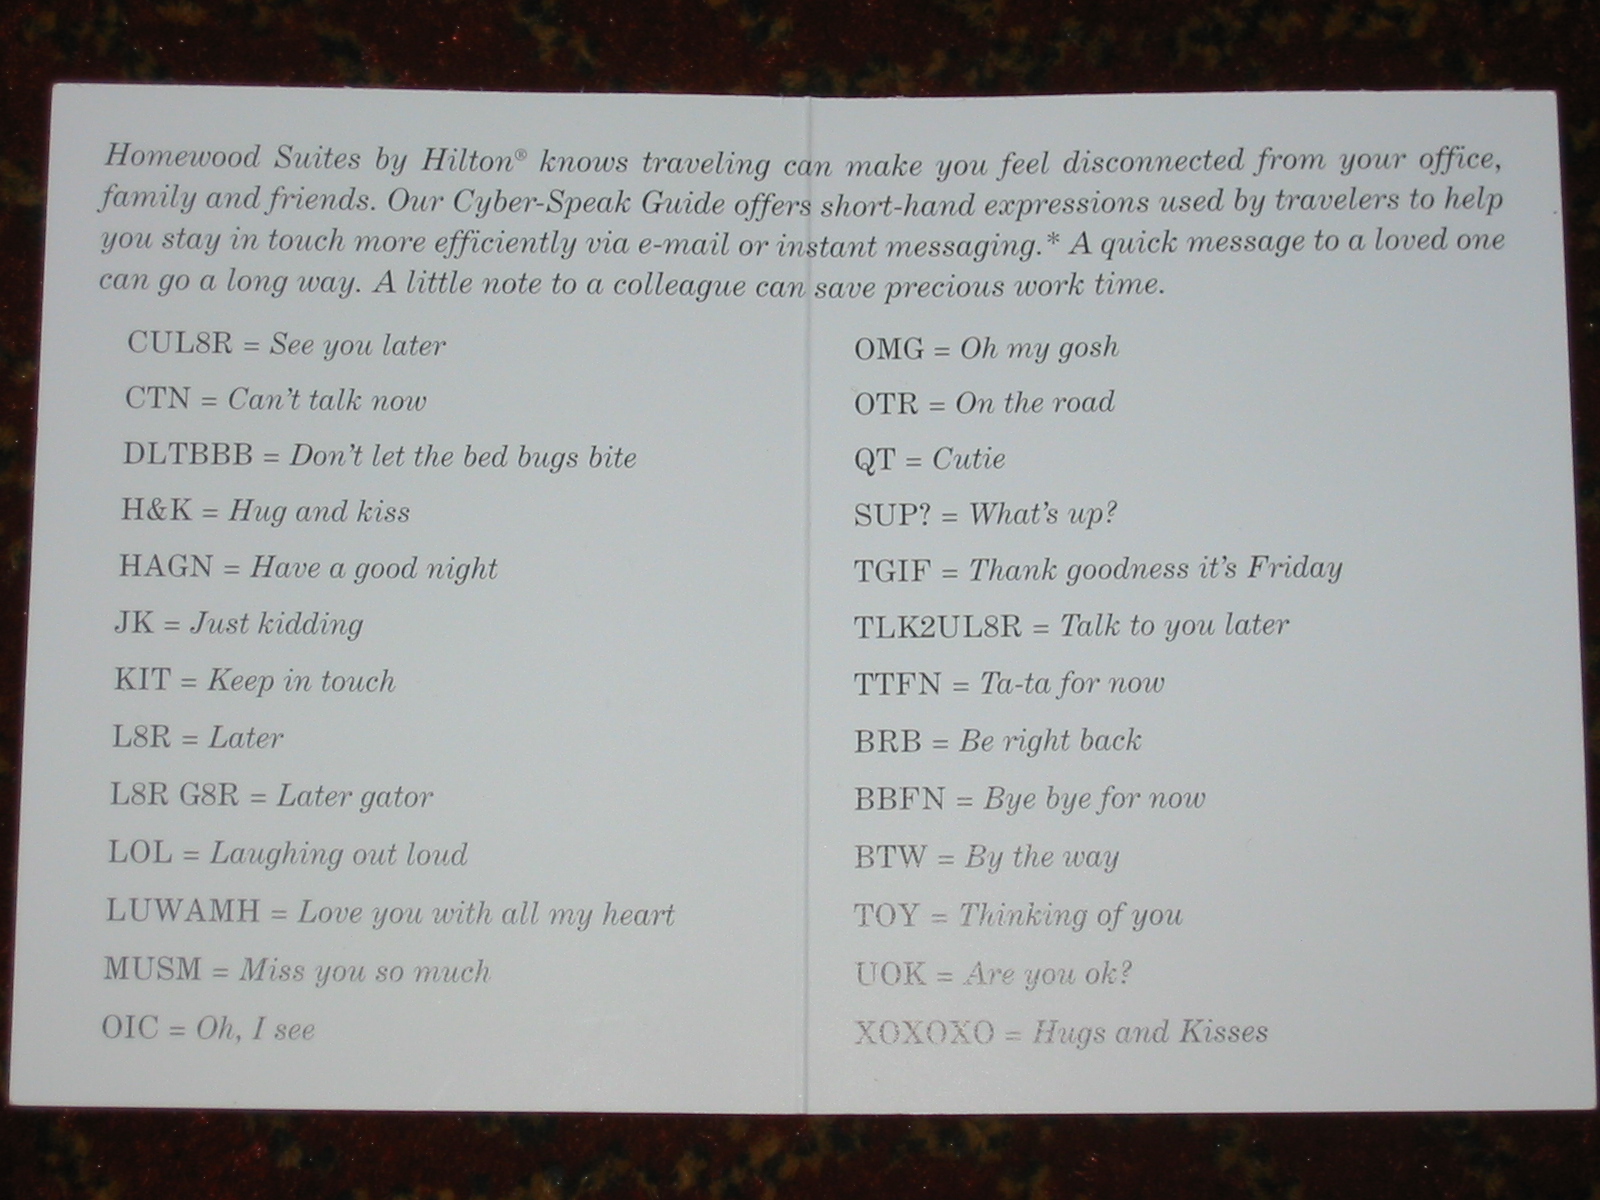 Homewood Suites by Hilton® knows traveling can make you feel disconnected from your office,
family and friends. Our Cyber-Speak Guide offers short-hand expressions used by travelers to help
you stay in touch more efficiently via e-mail or instant messaging.* A quick message to a loved one
can go a long way. A little note to a colleague can save precious work time.
CUL8R = See you later
CTN = Can't talk now
DLTBBB = Don't let the bed bugs bite
H&K = Hug and kiss
HAGN = Have a good night
JK = Just kidding
KIT = Keep in touch
L8R = Later
L8R G8R = Later gator
LOL = Laughing out loud
LUWAMH = Love you with all my heart
MUSM = Miss you so much
OIC = Oh, I see
OMG = Oh my gosh
OTR = On the road
QT = Cutie
SUP? = What's up?
TGIF = Thank goodness it's Friday
TLK2UL8R = Talk to you later
TTFN = Ta-ta for now
BRB = Be right back
BBFN = Bye bye for now
BTW = By the way
TOY = Thinking of you
UOK = Are you ok?
XOXOXO = Hugs and Kisses